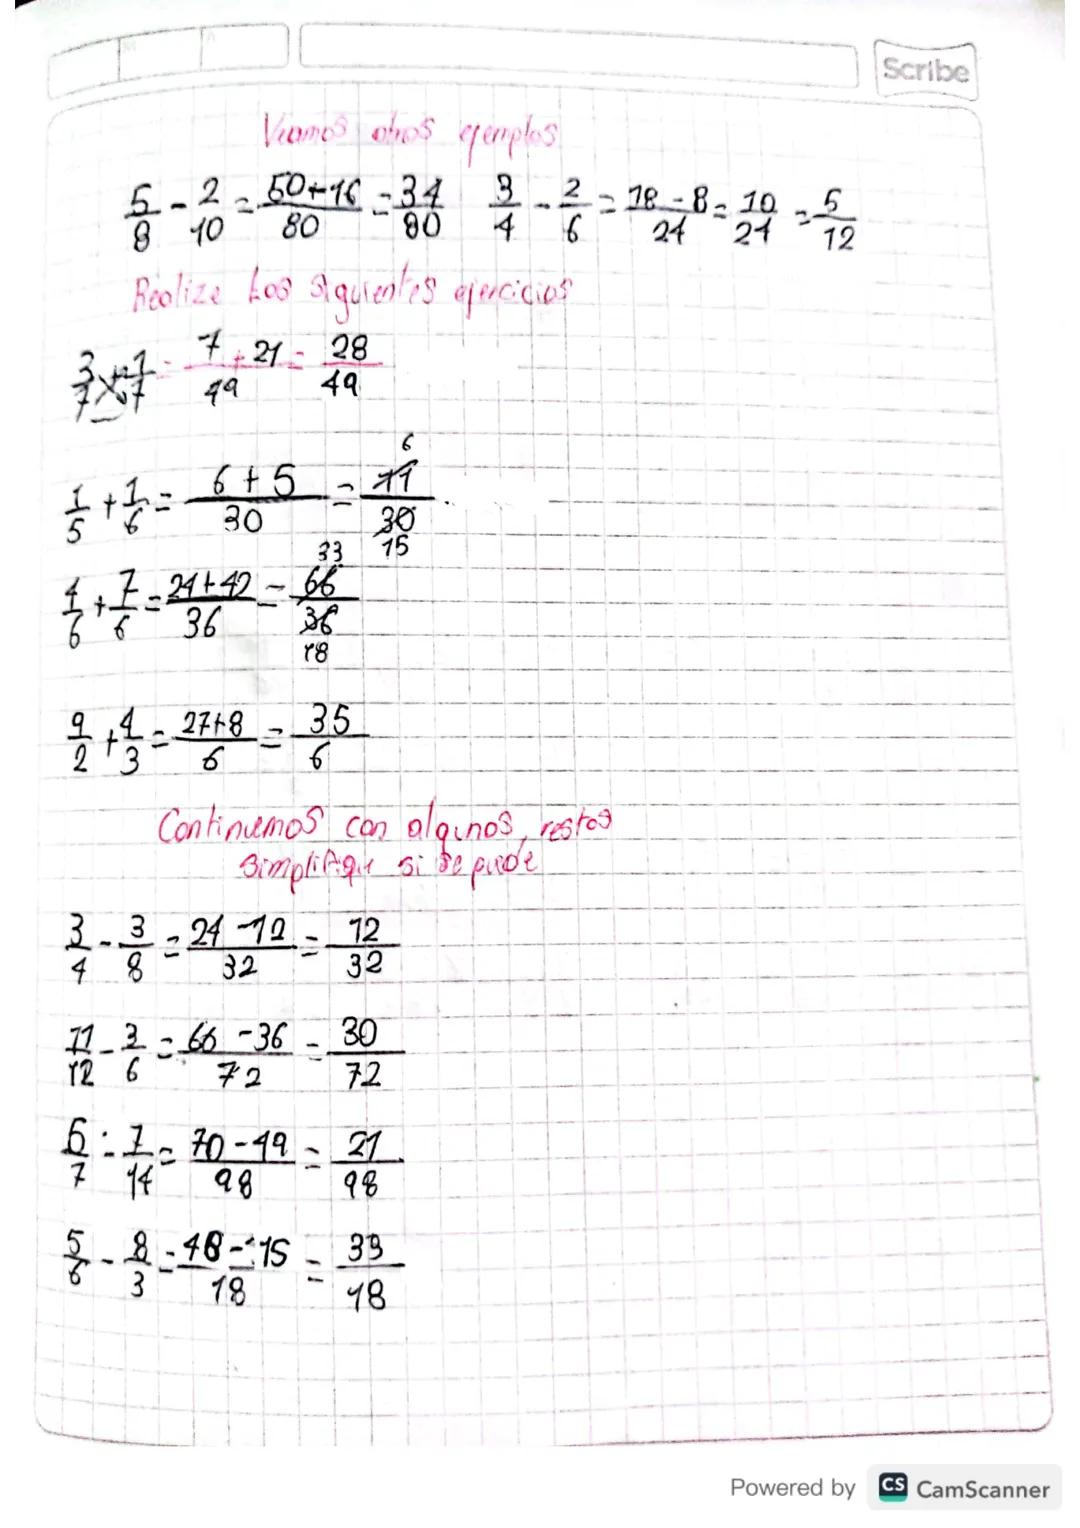 Scribe
Veamos otros ejemplos
5/8 - 2/10 = 50+16/80 = 34/80   3/4 - 2/6 = 18-8/24 = 10/24 = 5/12
Realize Los siguientes ejercicios
3/7 + 1/7 = 7+21/49 = 28/49
1/5 + 1/6 = 6+5/30 = 11/30 6 15
4/6 + 7/6 = 24+42/36 = 66/36 33 18
9/2 + 4/3 = 27+8/6 = 35/6
Continuemos con algunos, restos
simplifiqu si se puede
3/4 - 3/8 = 24-12/32 = 12/32
11/12 - 3/6 = 66-36/72 = 30/72
/7 - 7/14 = 70-49/98 = 21/98
5/6 - 8/3 = 48-15/18 = 33/18
Powered by CS CamScanner